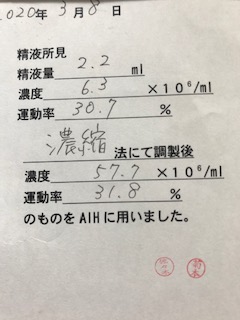 2020年 3月 8日
精液所見
精液量 2.2 ml
濃度 6.3 ×10⁶/ml
運動率 30.7 %
濃縮 法にて調製後
濃度 57.7 ×10⁶/ml
運動率 31.8 %
のものをAIHに用いました。